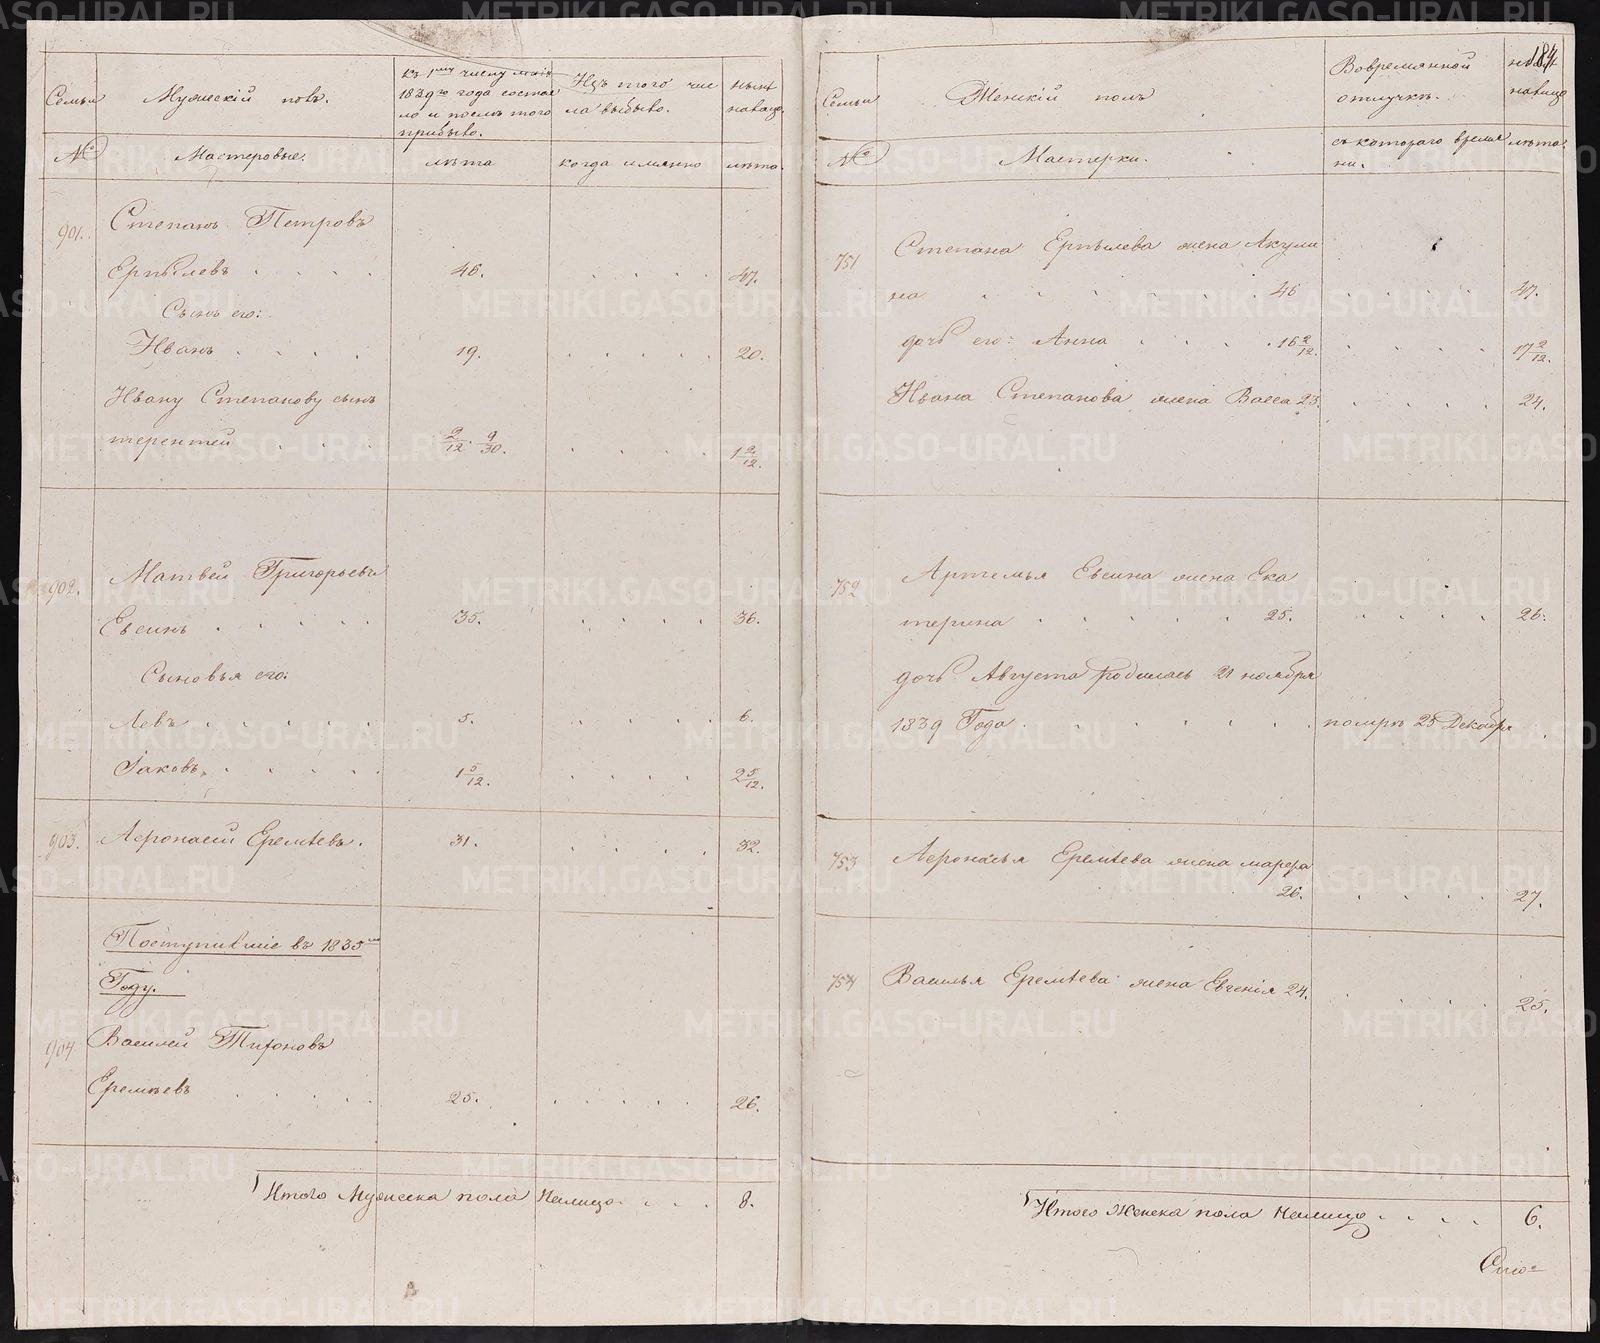 184
Семьи
Мужескiй полъ.
къ 1му числу маiя
1839го года состоя
ло и послѣ того
прибыло.
Изъ того чис
ла выбыло.
нынѣ
налицо.
№
Мастеровые.
лѣта
когда имянно
лѣта.
901.
Степанъ Петровъ
Ерпылевъ 46. 47.
Сынъ его:
Иванъ 19. 20.
Ивану Степанову сынъ
терентей 2/12. 9/30. 1 2/12.
902.
Матвей Григорьевъ
Евсинъ 35. 36.
Сыновья его:
Левъ 5. 6.
Iаковъ. 1 5/12. 2 5/12.
903. Афонасей Еремѣевъ. 31. 32.
Поступившiе въ 1835мъ
Году.
904
Василей Тихоновъ
Еремѣевъ 25. 26.
Итого Мужеска пола Налицо 8.
Семьи
Женскiй полъ
Вовремянной
отлучкѣ.
налицо
№
Мастерки.
съ котораго время
ни.
лѣта.
751
Степана Ерпылева жена Акули
на 46 47.
дочь его: Анна 16 2/12. 17 2/12.
Ивана Степанова жена Васса 23. 24.
752
Артемья Евсина жена Ека
терина 25. 26.
дочь Августа родилась 21 ноября
1839 Года померъ 25 Декабря
753
Афонасья Еремѣева жена марфа
26. 27.
754
Василья Еремѣева жена Евгенiя 24. 25.
Итого Женска пола Налицо 6.
METRIKI.GASO-URAL.RU